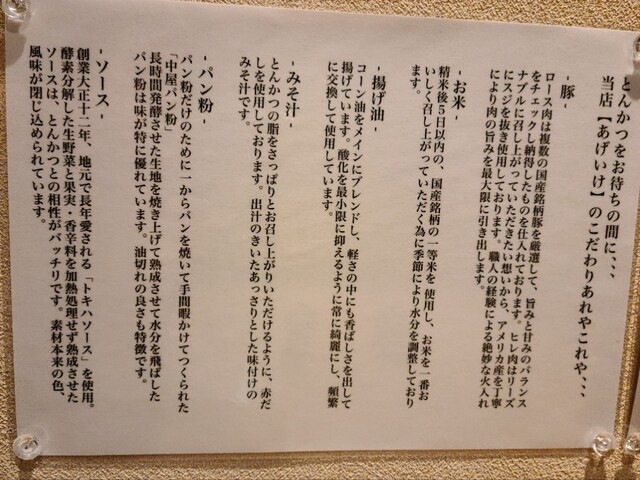 とんかつをお待ちの間に、、、
当店【あげいけ】のこだわりあれやこれや、、、
- 豚 -
ロース肉は複数の国産銘柄豚を厳選して、旨みと甘みのバランス
をチェックし納得したものを仕入れております。ヒレ肉はリーズ
ナブルに召し上がっていただきたい想いから、アメリカ産を丁寧
にスジを抜き使用しております。職人の経験による絶妙な火入れ
により肉の旨みを最大限に引き出します。
- お米 -
精米後5日以内の、国産銘柄の一等米を使用し、お米を一番お
いしく召し上がっていただく為に季節により水分を調整しており
ます。
- 揚げ油 -
コーン油をメインにブレンドし、軽さの中にも香ばしさを出して
揚げています。酸化を最小限に抑えるように常に綺麗にし、頻繁
に交換して使用しています。
- みそ汁 -
とんかつの脂をさっぱりとお召し上がりいただけるように、赤だ
しを使用しております。出汁のきいたあっさりとした味付けの
みそ汁です。
- パン粉 -
パン粉だけのために一からパンを焼いて手間暇かけてつくられた
「中屋パン粉」
長時間発酵させた生地を焼き上げて熟成させて水分を飛ばした
パン粉は味が特に優れています。油切れの良さも特徴です。
- ソース -
創業大正十二年、地元で長年愛される「トキハソース」を使用。
酵素分解した生野菜と果実・香辛料を加熱処理せず熟成させた
ソースは、とんかつとの相性がバッチリです。素材本来の色、
風味が閉じ込められています。